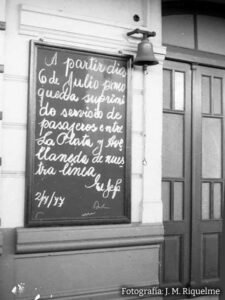 A partir dia
6 de Julio pmo
queda suprimi
do servicio de
pasajeros entre
La Plata y Ave
llaneda de nues
tra linea
El Jefe
2/7/77
Fotografía: J. M. Riquelme